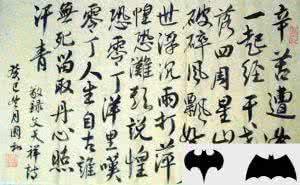 辛苦遭
一起经干
落四周星山
破碎风飘如
世浮沉雨打萍
惶恐滩头说惶
恐零丁洋里叹
零丁人生自古谁
无死留取丹心照
汗青
敬录文天祥诗
癸巳冬月国